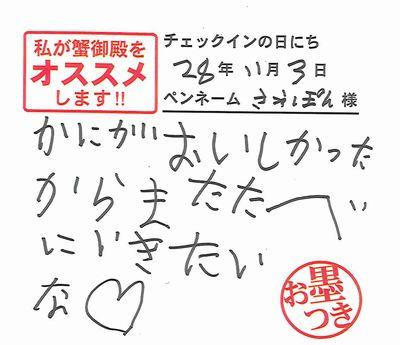 私が蟹御殿を
オススメ
します!!
チェックインの日にち
28年11月3日
ペンネーム さわぽん 様
かにがおいしかった
からまたたべ
にいきたい
な♡
お墨つき